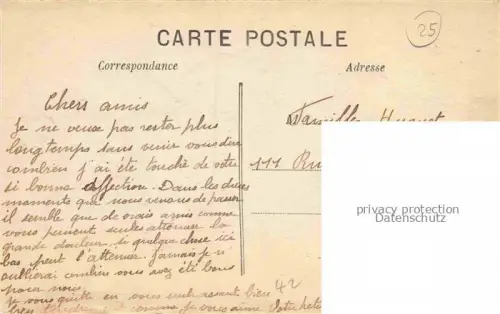 25
CARTE POSTALE
Correspondance
Adresse
Chers amis
Je ne veux pas rester plus
longtemps sans venir vous dire
combien j'ai été touché de votre
si bonne affection. Dans les dures
moments que nous venons de passer
il semble que de vrais amis comme
vous peuvent seules atténuer la
grande douleur, si quelque chose ici
bas peut l'atténuer. Jamais je n'
oublierai combien vous avez été bons
pour nous.
Je vous quitte en vous embrassant bien
comme je vous aime
Famille Huguet
111 Ru
42
privacy protection
Datenschutz